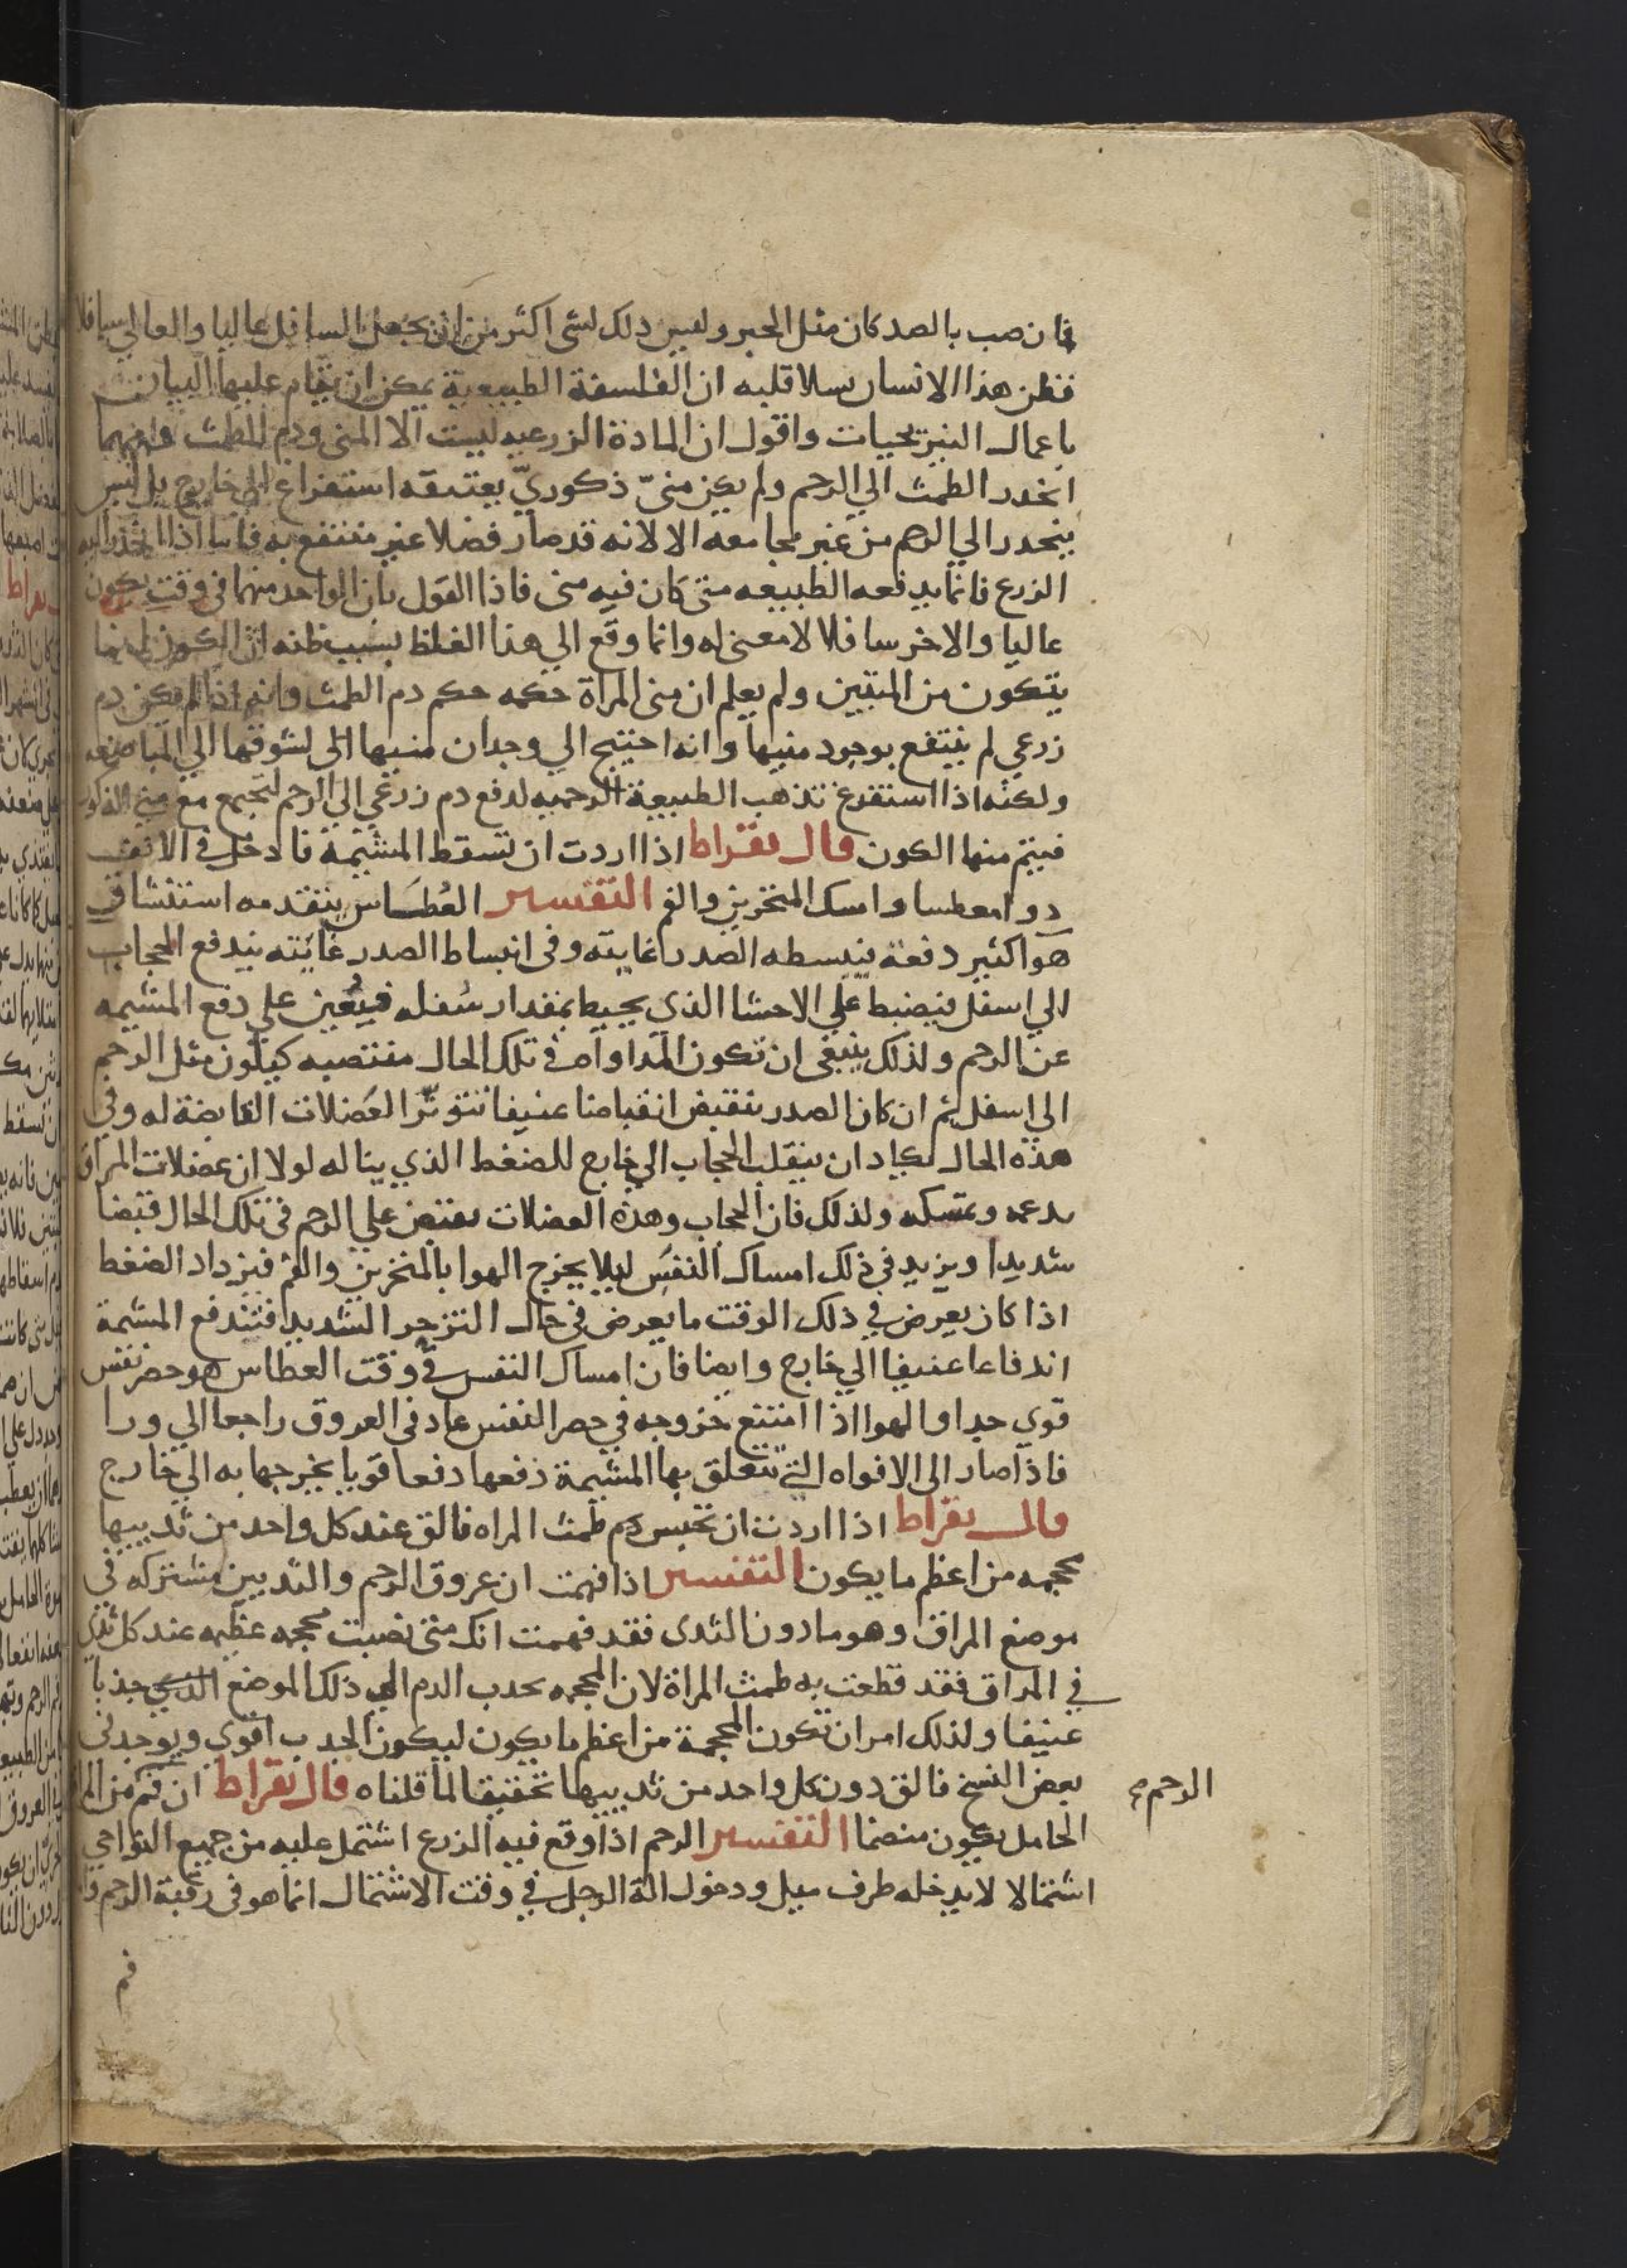 فان صب بالصد كان مثل الحبر وليس ذلك لشى اكثر من ان يجعل السافل عاليا والعالي سافلا
فظن هذا الانسان سلا قلبه ان الفلسفة الطبيعية يمكن ان يقام عليها البيان
باعمال النيرنجيات واقول ان المادة الزرعيه ليست الا المنى ودم الطمث
انحدر الطمث الي الرحم ولم يكن منىّ ذكوريّ يعتدقه استفراغ الي خارج بل ليس
ينحدر الي الرحم من غير مجامعه الا لانه قد صار فضلا غير منتفع به فاما اذا انحدر اليه
الزرع فانما يدفعه الطبيعه متى كان فيه منى فاذا القول بان الواحد منهما فى وقت يكون
عاليا والاخر سافلا لا معنى له وانما وقع الي هذا الغلظ بسبب ظنه ان الكون انما
يتكون من المنيين ولم يعلم ان منى المراة حكمه حكم دم الطمث وانه اذا لم يكن دم
زرعي لم ينتفع بوجود منيها وانه احتيج الي وجدان منيها الى لشوقها الي المباضعه
ولكنه اذا استفرغ تذهب الطبيعة الرحميه لدفع دم زرعي الي الرحم لتجمع مع مني الذكور
فيتم منها الكون قال بقراط اذا اردت ان تسقط المشيمة فادخل في الانف
دوا معطسا وامسك المنخرين والفم التفسير العُطَاس يتقدمه استنشاق
هوا كثير دفعة ينبسطه الصدر غايته وفى انبساط الصدر غايته يندفع الحجاب
الي اسفل فيضبط علي الاحشا الذي يحيط بمقدار سُفله فيُعين علي دفع المشيمه
عن الرحم ولذلك ينبغى ان تكون المداواه في تلك الحال منتصبه كيلون مثل الرحم
الي اسفل ثم ان كان الصدر ينقبض انقباضا عنيفا تتوتّر العَضلات القابضة له وفي
هذه الحال يكاد ان ينقلب الحجاب الي خارج للضغط الذي يناله لولا ان عضلات المراق
يدعمه وتمسكه ولذلك فان الحجاب وهذه العضلات يقبض علي الرحم فى تلك الحال قبضا
شديدا ويزيد في ذلك امساك النفَس ليلا يخرج الهوا بالمنخرين والفم فيزداد الضغط
اذا كان يعرض في ذلك الوقت ما يعرض فى حال التزحر الشديد فتندفع المشمة
اندفاعا عنيفا الي خارج وايضا فان امساك النفس في وقت العطاس هو حصر نفس
قوي جدا والهوا اذا امتنع خروجه في حصر النفس عاد فى العروق راجعا الي ورا
فاذا صار الى الافواه التي تتعلق بها المشيمة دفعها دفعا قويا يخرجها به الي خارج
قال بقراط اذا اردت ان تحبس دم طمث المراه فالق عند كل واحد من ثدييها
محجمه من اعظم ما يكون التفسير اذا فهمت ان عروق الرحم والثديين مشتركه في
موضع المراق وهو ما دون الثدى فقد فهمت انك متى نصبت محجمه عظيمه عند كل ثدي
في المراق فقد قطعت به طمث المراة لان المحجمه تحدب الدم الي ذلك الموضع الذي جذبا
عنيفا ولذلك امر ان تكون المحجمة من اعظم ما يكون ليكون الجدب اقوي ويوجد فى
بعض النسخ فالق دون كل واحد من ثدييها تحقيقا لما قلناه قال بقراط ان فم من المراة
الرحم
الحامل يكون منضما التفسير الرحم اذا وقع فيه الزرع اشتمل عليه من جميع النواحي
اشتمالا لا يدخله طرف ميل ودخول الة الرجل في وقت الاشتمال انما هو فى رقبة الرحم
فم